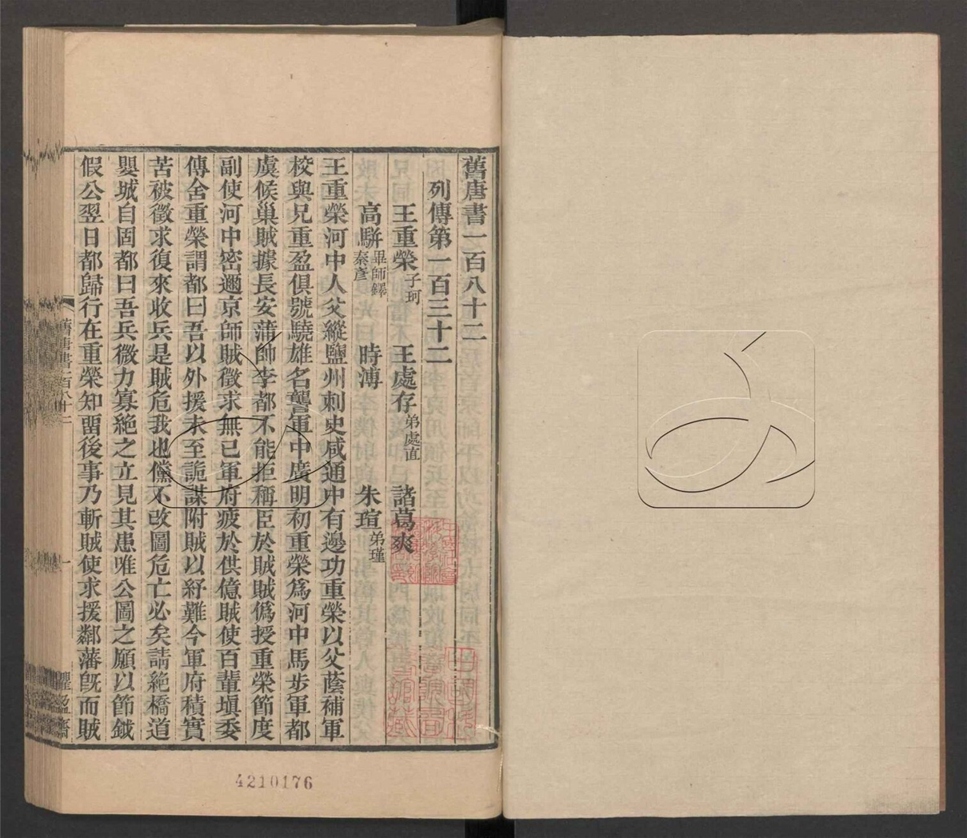 舊唐書一百八十二
列傳第一百三十二
王重榮子珂 王處存弟處直 諸葛爽
高駢畢師鐸秦彥 時溥 朱瑄弟瑾
王重榮河中人父縱鹽州刺史咸通中有邊功重榮以父蔭補軍
校與兄重盈俱號驍雄名聾軍中廣明初重榮爲河中馬步軍都
虞候巢賊據長安蒲帥李都不能拒稱臣於賊賊僞授重榮節度
副使河中密邇京師賊徵求無已軍府疲於供億賊使百輩塡委
傳舍重榮謂都曰吾以外援未至詭謀附賊以紓難今軍府積實
苦被徵求復來收兵是賊危我也儻不改圖危亡必矣請絶橋道
嬰城自固都曰吾兵微力寡絶之立見其患唯公圖之願以節鉞
假公翌日都歸行在重榮知留後事乃斬賊使求援鄰藩旣而賊
舊唐書一百八十二
一
懼盈齋
4210176